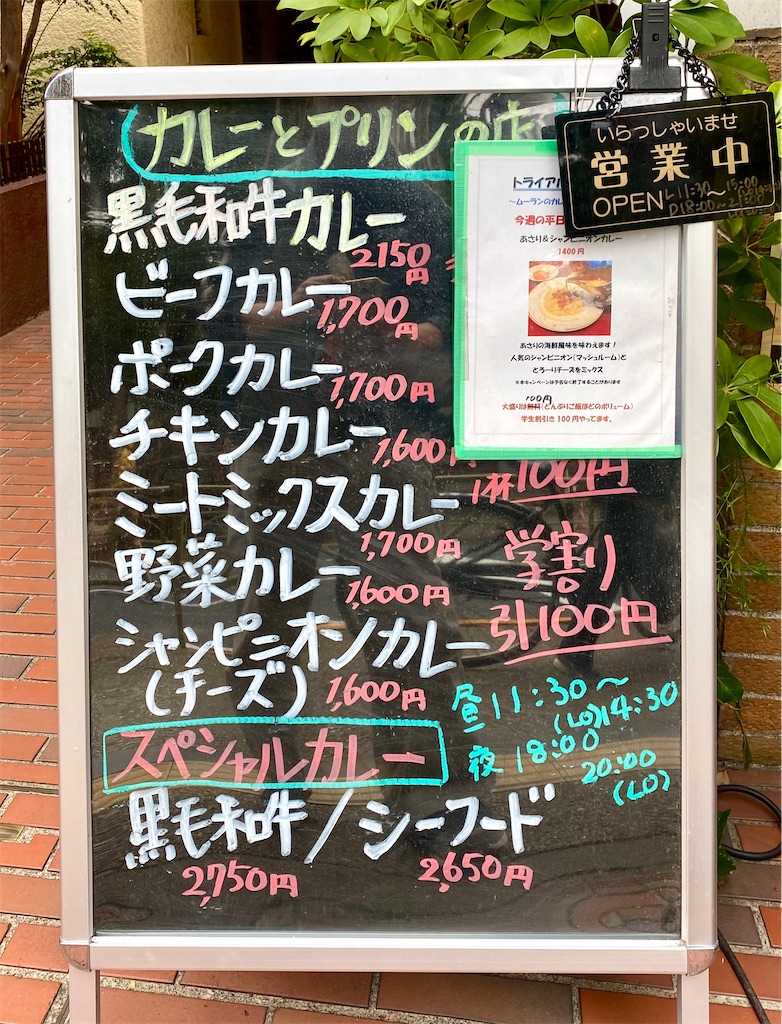 カレーとプリンの店
黒毛和牛カレー
2150円
ビーフカレー
1,700円
ポークカレー
1,700円
チキンカレー
1,600円
ミートミックスカレー
1,700円
野菜カレー
1,600円
シャンピニオンカレー
(チーズ)
1,600円
スペシャルカレー
黒毛和牛/シーフード
2,750円
2,650円
いらっしゃいませ
営業中
OPEN L 11:30〜15:00
D 18:00〜
トライアル
〜ムーランのカレ
今週の平日
あさり&シャンピニオンカレー
1400円
あさりの海鮮風味を味わえます!
人気のシャンピニオン(マッシュルーム)と
とろーりチーズをミックス
※本キャンペーンは予告なく終了することがあります
100円
大盛りは無料(どんぶりご飯ほどのボリューム)
学生割引き100円やってます。
1杯100円
学割り
引100円
昼11:30〜
(LO)14:30
夜18:00
20:00
(LO)